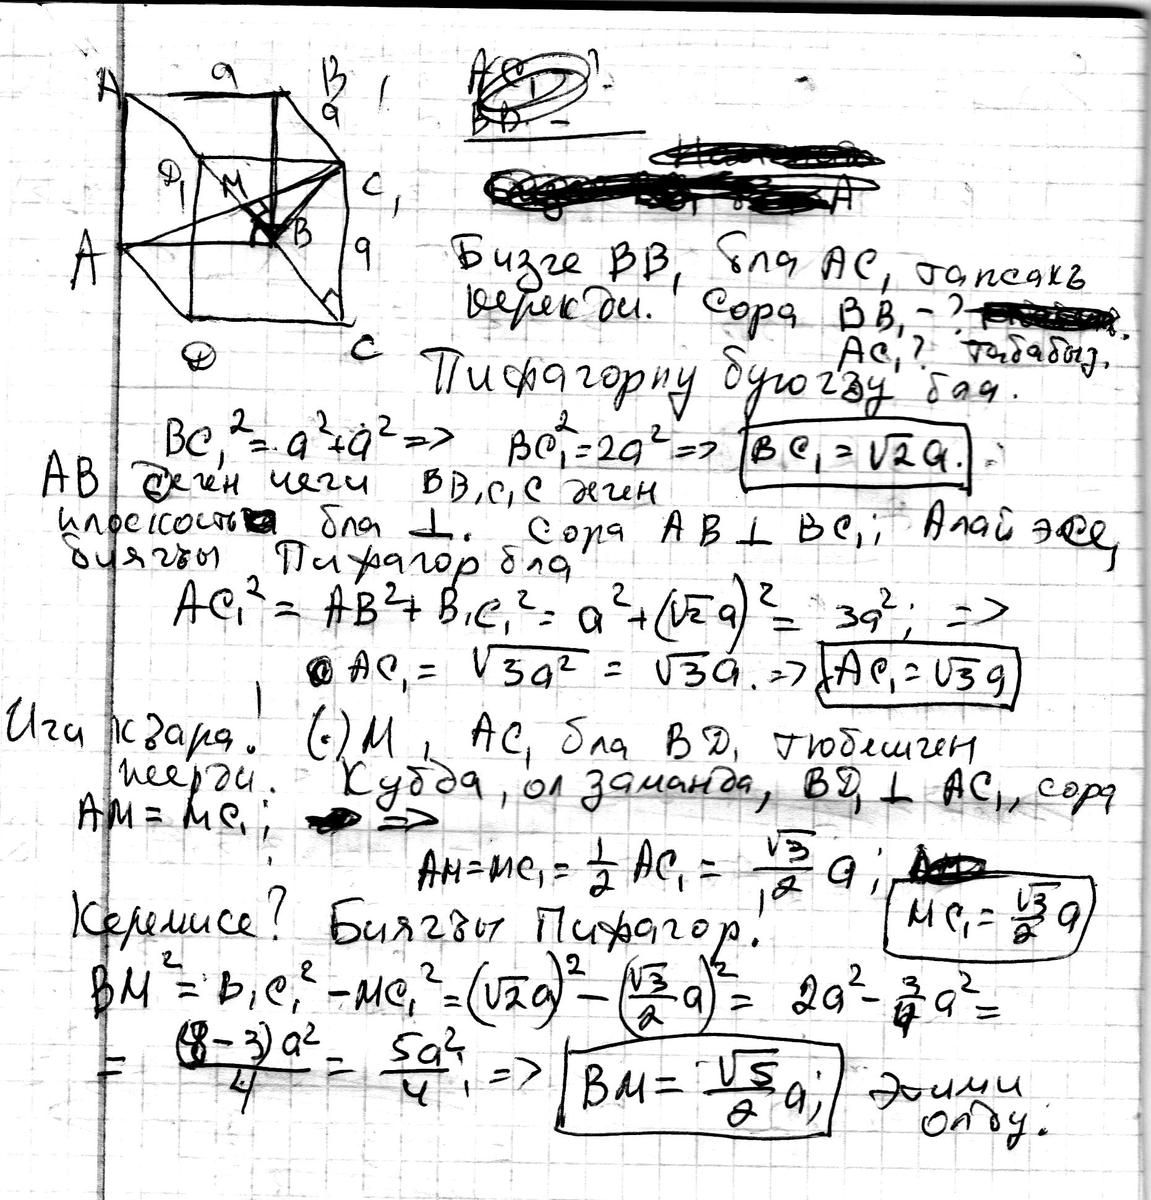 A a B₁
a
D₁ M C₁
A B a
D C
AC₁ ?
BD₁ -
A
Бизге BB₁ бла AC₁ тапсакъ
керекди. Сора BB₁ - ?
AC₁? табабыз.
Пифагорну бугъоу бла.
BC₁² = a² + a² => BC₁² = 2a² => BC₁ = √2a.
AB деген чеги BB₁C₁C деген
плоскость бла ⊥. Сора AB ⊥ BC₁; Алай эсе,
биягъы Пифагор бла
AC₁² = AB² + B₁C₁² = a² + (√2a)² = 3a²; =>
AC₁ = √3a² = √3a. => AC₁ = √3a
Ига къара! (·) M, AC₁ бла BD₁ тюбешген
жерди. Кубда, ол заманда, BD₁ ⊥ AC₁, сора
AM = MC₁; =>
AM = MC₁ = 1/2 AC₁ = √3/2 a;
MC₁ = √3/2 a
Керемисе? Биягъы Пифагор!
BM² = B₁C₁² - MC₁² = (√2a)² - (√3/2 a)² = 2a² - 3/4 a² =
= (8-3)a²/4 = 5a²/4; => BM = √5/2 a; Эшими
олду.